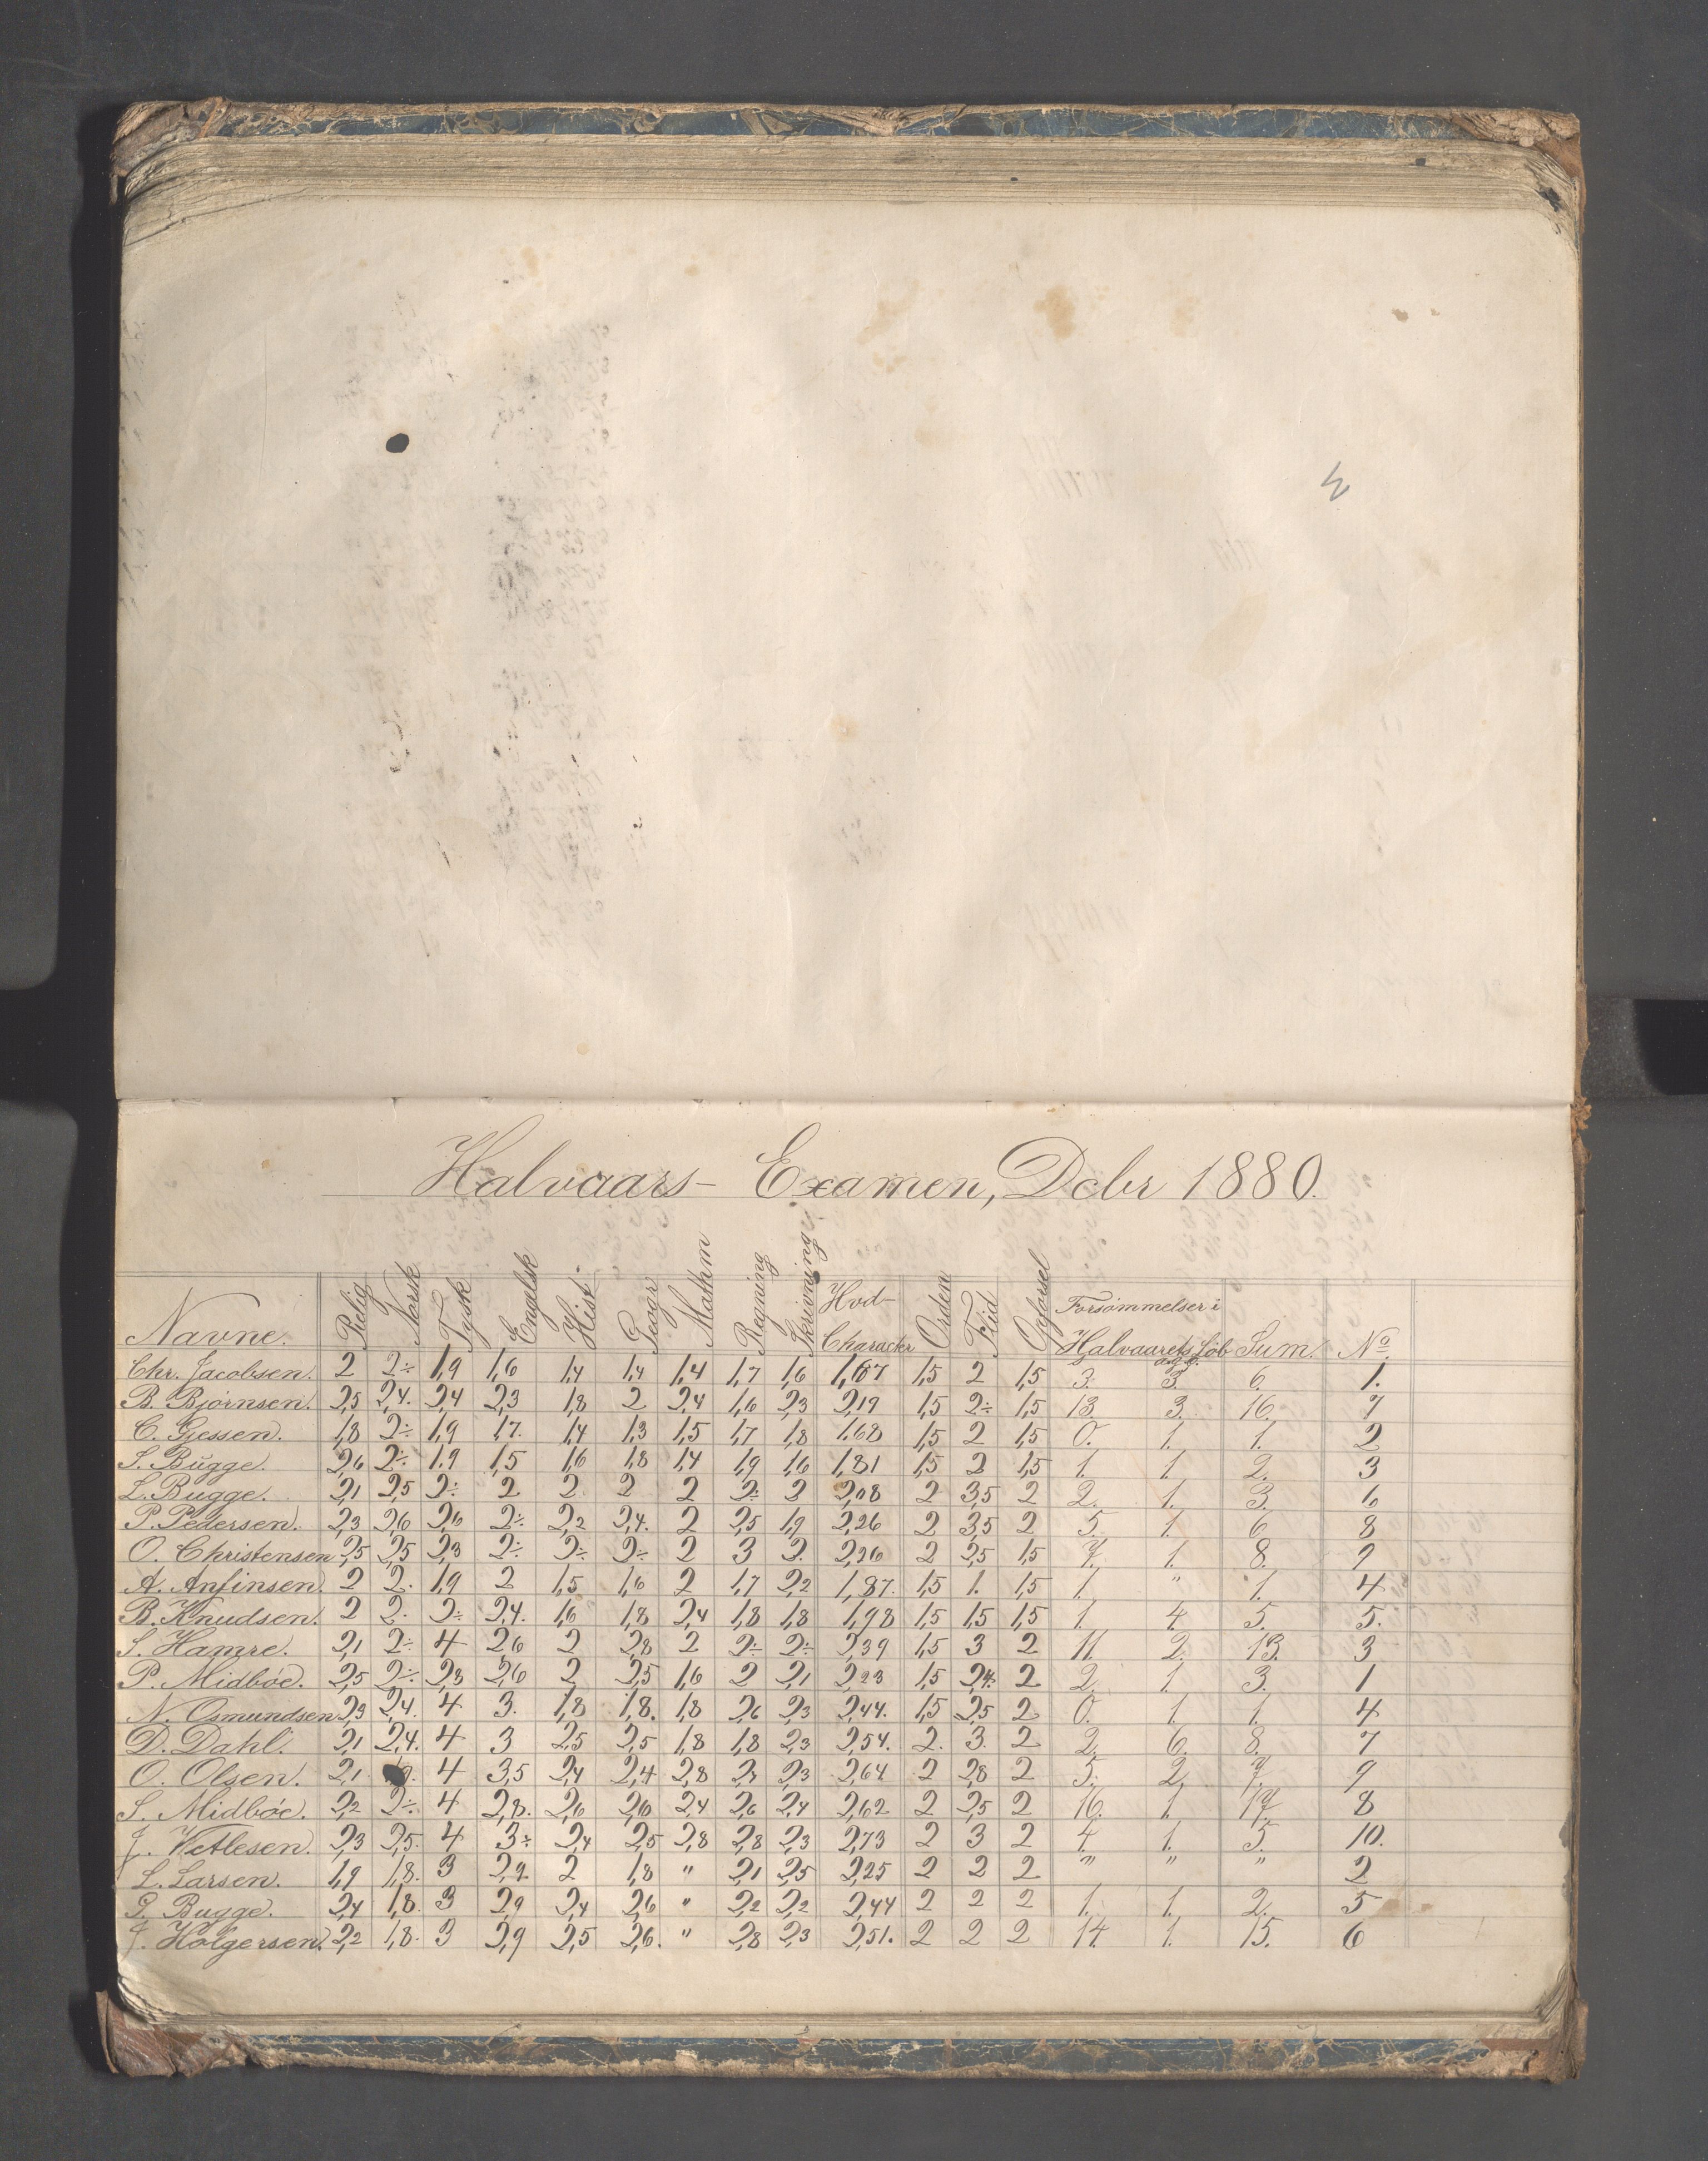 Halvaars- Examen, Dcbr 1880.
Navne. Relig Norsk Tysk Engelsk Hist. Geogr Mathm Regning Skrivning Hvd- Character Orden Flid Opførsel Forsømmelser i Halvaarets Løb Sum. No.
Chr. Jacobsen. 2 2÷ 1,9 1,6 1,4 1,4 1,4 1,7 1,6 1,67 1,5 2 1,5 3. 3. 6. 1.
B. Bjørnsen. 2,5 2,4. 2,4 2,3 1,8 2 2,4 1,6 2,3 2,19 1,5 2÷ 1,5 13. 3. 16. 7
C. Gjessen. 1,8 2÷ 1,9 1,7. 1,4 1,3 1,5 1,7 1,8 1.68 1,5 2 1,5 0. 1. 1. 2
S. Bugge. 2,6 2÷ 1.9 1,5 1,6 1,8 1,4 1,9 1,6 1,81 1,5 2 1,5 1. 1. 2. 3
L. Bugge. 2,1 2,5 2÷ 2 2 2 2 2÷ 2 2,08 2 3,5 2 2. 1. 3. 6
P. Pedersen. 2,3 2,6 2,6 2÷ 2,2 2,4. 2 2,5 1,9 2,26 2 3,5 2 5. 1. 6. 8
O. Christensen 2,5 2,5 2,3 2÷ 2÷ 2÷ 2 3 2. 2,26 2 2,5 1,5 7. 1. 8. 9
A. Anfinsen. 2 2. 1,9 2 1,5 1,6 2 1,7 2,2 1,87. 1,5 1. 1,5 1. " 1. 4
B. Knudsen. 2 2. 2÷ 2,4. 1,6 1,8 2,4 1,8 1,8 1,98 1,5 1,5 1,5 1. 4. 5. 5.
S. Hamre. 2,1 2÷ 4 2,6 2 2,8 2 2÷ 2÷ 2,39 1,5 3 2 11. 2. 13. 3
P. Midbøe. 2,5 2÷ 2,8 2,6 2 2,5 1,6 2 2,1 2,23 1,5 2,4. 2 2. 1. 3. 1
N. Osmundsen 2,3 2,4. 4 3. 1,8 1,8. 1,8 2,6 2,3 2,44. 1,5 2,5 2 0. 1. 1. 4
D. Dahl. 2,1 2,4. 4 3 2,5 2,5 1,8 1,8 2,3 2,54. 2. 3. 2 2. 6. 8. 7
O. Olsen. 2,1 4 3,5 2,4 2,4 2,8 2,3 2,64 2 2,8 2 5. 2. 7. 9
S. Midbøe. 2,2 2÷ 4 2,8. 2,6 2,6 2,4 2,6 2,4 2,62 2 2,5 2 16. 1. 17. 8
J. Vetlesen. 2,3 2,5. 4 3÷ 2,4 2,5 2,8 2,8 2,3 2,73 2 3 2 4. 1. 5. 10.
L. Larsen. 1,9 1,8. 3 2,9 2 1,8 " 2,1 2,5 2,25 2 2 2 " " " 2
G. Bugge. 2,4 1,8. 3 2,9 2,4 2,6 " 2,2 2,2 2,44 2 2 2 1. 1. 2. 5
J. Holgersen. 2,2 1,8. 3 2,9 2,5 2,6. " 2,8 2,3 2,51. 2 2 2 14. 1. 15. 6